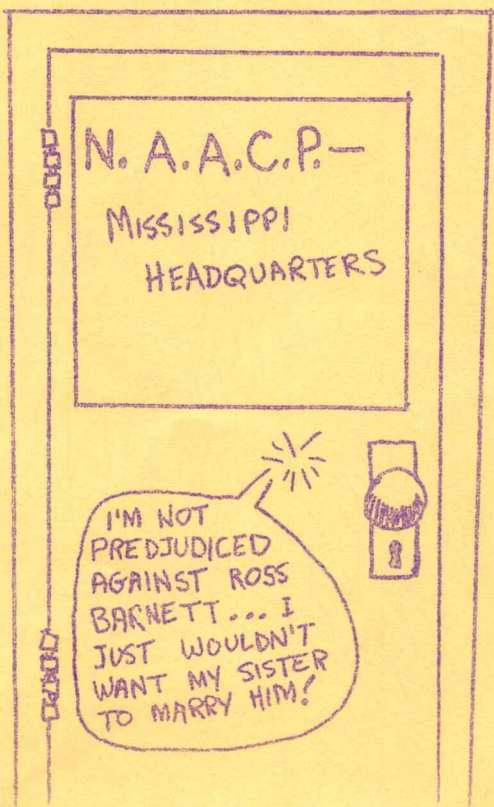 N. A.A.C.P.—
MISSISSIPPI
HEADQUARTERS
I'M NOT
PREDJUDICED
AGAINST ROSS
BARNETT... I
JUST WOULDN'T
WANT MY SISTER
TO MARRY HIM!